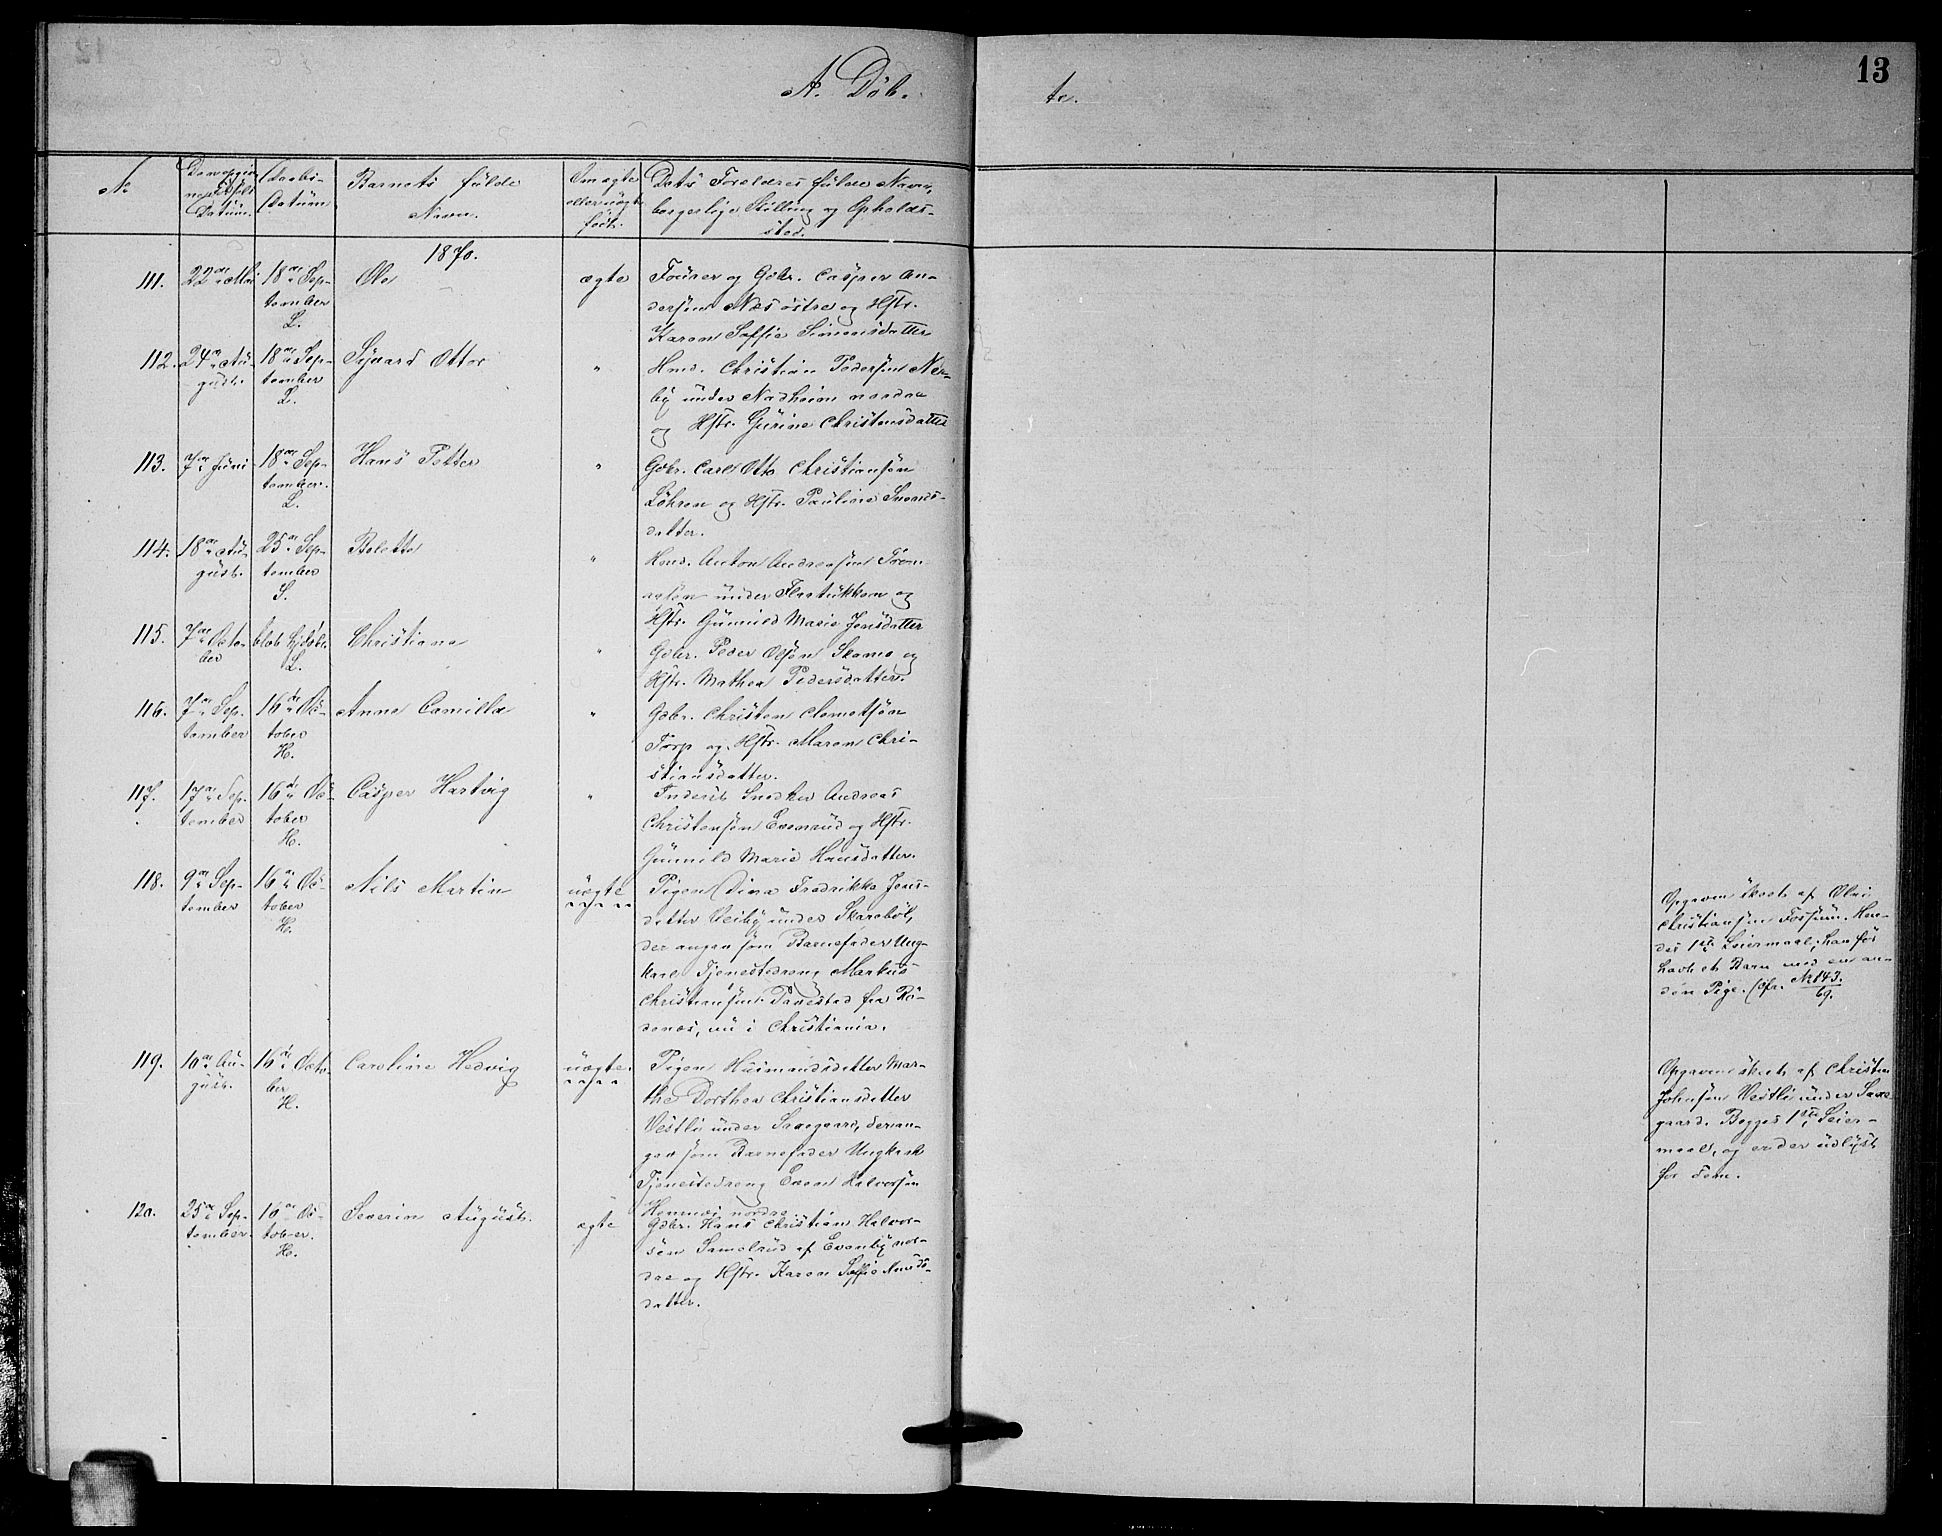 13
A. Døb-
te.
№
Datum.
Daabs-
Datum
Barnets fulde
Navn.
Om ægte
eller uægte
født.
Dets Forældres fulde Navn,
borgerlige Stilling og Opholds-
sted.
1870.
111.
22de Mai
18de Sep-
tember
L.
Ole
ægte
og Gbr. Casper An-
dersøn Næs østre og Hstr.
Karen Soffie Simensdatter
112.
24de Au-
gust.
18de Sep-
tember
L.
Sigvard Otter
"
Hmd. Christian Pedersøn
under Nadheim nordre
og Hstr. Gurine Christensdatter
113.
7de Juni
18de Sep-
tember.
L.
Hans Petter
"
Gbr. Carl Otto Christiansøn
Løkren og Hstr. Pauline
datter.
114.
18de Au-
gust.
25de Sep-
tember
S.
Bolette
"
Hmd. Anton Andreasøn
under og
Hstr. Gunnild Marie Jensdatter
115.
7de Octo-
ber
blot
L.
Christiane
"
Gbr. Peder Olsøn Skamo og
Hstr. Mathea Pedersdatter.
116.
7de Sep-
tember
16de Oc-
tober
H.
Anne Camilla
"
Gbr. Christen Clemetsøn
Torp og Hstr. Maren Chri-
stiansdatter.
117.
17de Sep-
tember
16de Oc-
tober
H.
Casper Hartvig
"
Inderst Snedker Andreas
Christensøn Evenrud og Hstr.
Gunnild Marie Hansdatter.
118.
9de Sep-
tember
16de Oc-
tober
H.
Nils Martin
uægte
Pigen Dina Fredrikke Jens-
datter Veiby under Skarebøl,
der angav som Barnefader Ung-
karl Tjenestedreng Markus
Christiansøn Tanestad fra Rø-
denæs, nu i Christiania.
Opgaven skeet af Olvi
Christiansøn Fossum. Hen-
des 1ste Leiermaal; han før
havt et Barn med en an-
den Pige. Cfr. № 143.
69.
119.
16de Au-
gust.
16de Octo-
ber
H.
Caroline Hedvig
uægte
Pigen Husmandsdatter Mar-
the Dorthea Christiansdatter
Vestli under Saxegaard, der an-
gav som Barnefader Ungkarl
Tjenestedreng Even Halvorsøn
Hemnæs nordre
Opgaven skeet af Christen
Johnsøn Vestli under Saxe-
gaard. Begges 1ste Leier-
maal, og er der udlyst
for dem.
120.
25de Sep-
tember.
16de Oc-
tober.
H.
Severin August.
ægte
Gbr. Hans Christian Halvor-
søn Samelrud af Evenby nor-
dre og Hstr. Karen Soffie
datter.